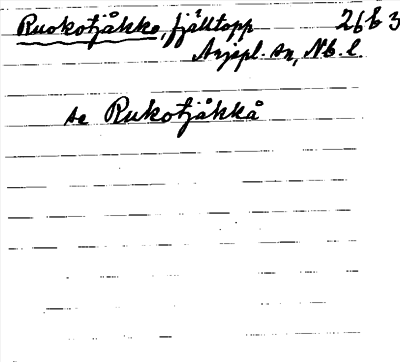 Ruokotjåkko, fjälltopp 26 E 3
Arjepl. sn, Nb. l.
se Rukotjåkkå